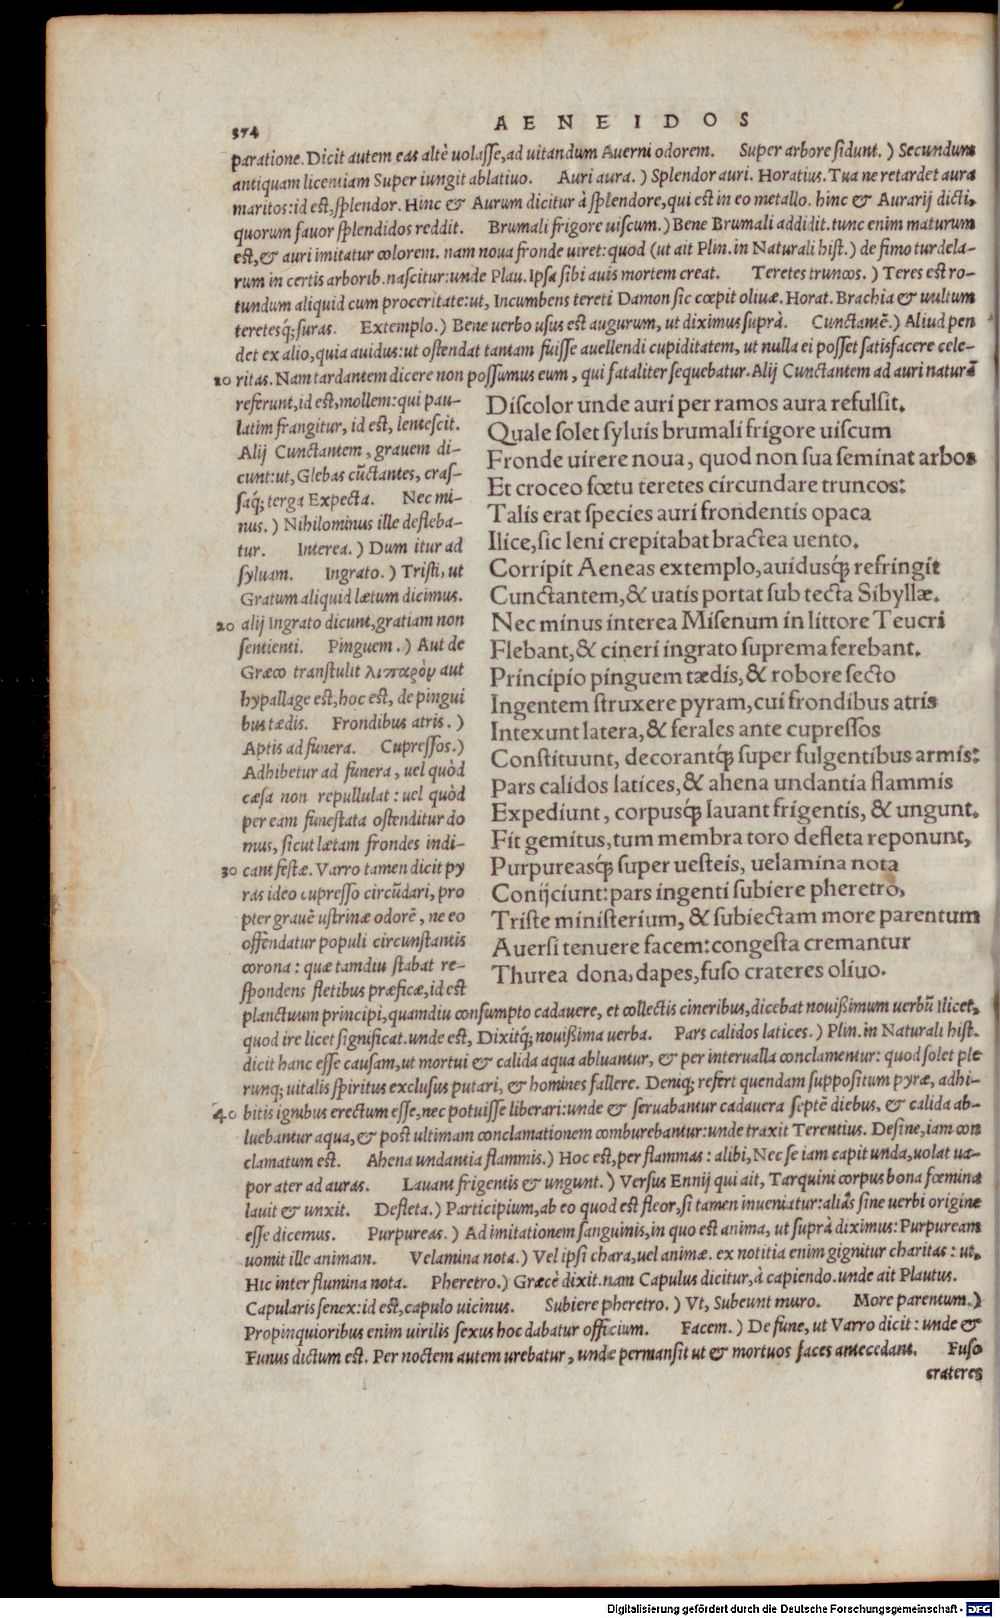 374 AENEIDOS
paratione. Dicit autem eas altè uolasse, ad uitandum Auerni odorem. Super arbore sidunt.) Secundum
antiquam licentiam Super iungit ablatiuo. Auri aura.) Splendor auri. Horatius. Tua ne retardet aura
maritos: id est, splendor. Hinc & Aurum dicitur à splendore, qui est in eo metallo. hinc & Aurarij dicti,
quorum fauor splendidos reddit. Brumali frigore uiscum.) Bene Brumali addidit. tunc enim maturum
est, & auri imitatur colorem. nam noua fronde uiret: quod (ut ait Plin. in Naturali hist.) de fimo turdela-
rum in certis arborib. nascitur: unde Plau. Ipsa sibi auis mortem creat. Teretes truncos.) Teres est ro-
tundum aliquid cum proceritate: ut, Incumbens tereti Damon sic cœpit oliuæ. Horat. Brachia & uultum
teretesq́; suras. Extemplo.) Bene uerbo usus est augurum, ut diximus suprà. Cunctantē.) Aliud pen
det ex alio, quia auidus: ut ostendat tantam fuisse auellendi cupiditatem, ut nulla ei posset satisfacere cele-
10 ritas. Nam tardantem dicere non possumus eum, qui fataliter sequebatur. Alij Cunctantem ad auri naturā
referunt, id est, mollem: qui pau-
latim frangitur, id est, lentescit.
Alij Cunctantem, grauem di-
cunt: ut, Glebas cūctantes, cras-
saq́; terga Expecta. Nec mi-
nus.) Nihilominus ille defleba-
tur. Interea.) Dum itur ad
syluam. Ingrato.) Tristi, ut
Gratum aliquid lætum dicimus.
20 alij Ingrato dicunt, gratiam non
sentienti. Pinguem.) Aut de
Græco transtulit λιπαρὸν aut
hypallage est, hoc est, de pingui
bus tædis. Frondibus atris.)
Aptis ad funera. Cupressos.)
Adhibetur ad funera, uel quòd
cæsa non repullulat: uel quòd
per eam funestata ostenditur do
mus, sicut lætam frondes indi-
30 cant festæ. Varro tamen dicit py
ras ideo cupresso circūdari, pro
pter grauē ustrinæ odorē, ne eo
offendatur populi circunstantis
corona: quæ tamdiu stabat re-
spondens fletibus præficæ, id est
Discolor unde auri per ramos aura refulsit.
Quale solet syluis brumali frigore uiscum
Fronde uirere noua, quod non sua seminat arbos
Et croceo fœtu teretes circundare truncos:
Talis erat species auri frondentis opaca
Ilice, sic leni crepitabat bractea uento.
Corripit Aeneas extemplo, auidusq́; refringit
Cunctantem, & uatis portat sub tecta Sibyllæ.
Nec minus interea Misenum in littore Teucri
Flebant, & cineri ingrato suprema ferebant.
Principio pinguem tædis, & robore secto
Ingentem struxere pyram, cui frondibus atris
Intexunt latera, & ferales ante cupressos
Constituunt, decorantq́; super fulgentibus armis:
Pars calidos latices, & ahena undantia flammis
Expediunt, corpusq́; lauant frigentis, & ungunt.
Fit gemitus, tum membra toro defleta reponunt,
Purpureasq́; super uesteis, uelamina nota
Conijciunt: pars ingenti subiere pheretro,
Triste ministerium, & subiectam more parentum
Auersi tenuere facem: congesta cremantur
Thurea dona, dapes, fuso crateres oliuo.
planctuum principi, quamdiu consumpto cadauere, et collectis cineribus, dicebat nouißimum uerbū Ilicet,
quod ire licet significat. unde est, Dixitq́; nouißima uerba. Pars calidos latices.) Plin. in Naturali hist.
dicit hanc esse causam, ut mortui & calida aqua abluantur, & per interualla conclamentur: quod solet ple
runq; uitalis spiritus exclusus putari, & homines fallere. Deniq; refert quendam suppositum pyræ, adhi-
40 bitis ignibus erectum esse, nec potuisse liberari: unde & seruabantur cadauera septē diebus, & calida ab-
luebantur aqua, & post ultimam conclamationem comburebantur: unde traxit Terentius. Desine, iam con
clamatum est. Ahena undantia flammis.) Hoc est, per flammas: alibi, Nec se iam capit unda, uolat ua-
por ater ad auras. Lauant frigentis & ungunt.) Versus Ennij qui ait, Tarquini corpus bona fœmina
lauit & unxit. Defleta.) Participium, ab eo quod est fleor, si tamen inueniatur: aliās sine uerbi origine
esse dicemus. Purpureas.) Ad imitationem sanguinis, in quo est anima, ut suprà diximus: Purpuream
uomit ille animam. Velamina nota.) Vel ipsi chara, uel animæ. ex notitia enim gignitur charitas: ut,
Hic inter flumina nota. Pheretro.) Græcè dixit. nam Capulus dicitur, à capiendo. unde ait Plautus.
Capularis senex: id est, capulo uicinus. Subiere pheretro.) Vt, Subeunt muro. More parentum.)
Propinquioribus enim uirilis sexus hoc dabatur officium. Facem.) De fune, ut Varro dicit: unde &
Funus dictum est. Per noctem autem urebatur, unde permansit ut & mortuos faces antecedant. Fuso
crateres
Digitalisierung gefördert durch die Deutsche Forschungsgemeinschaft - DFG